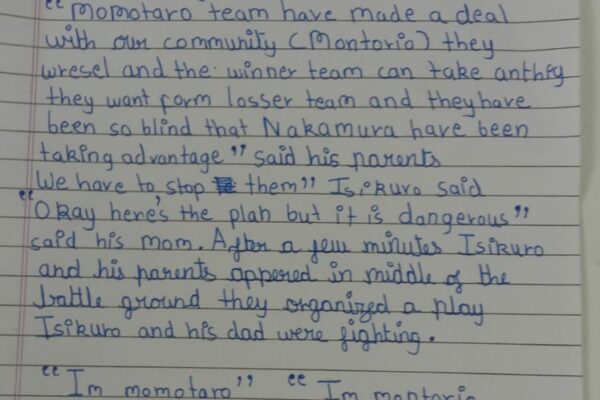 "Momotaro team have made a deal
with our community (Montorio) they
wresel and the winner team can take anthing
they want form losser team and they have
been so blind that Nakamura have been
taking advantage" said his parents
We have to stop them" Isikuro said
"Okay here's the plan but it is dangerous"
said his mom. After a few minutes Isikuro
and his parents appered in middle of the
battle ground they organized a play
Isikuro and his dad were fighting.
"Im momotaro" "Im montorio